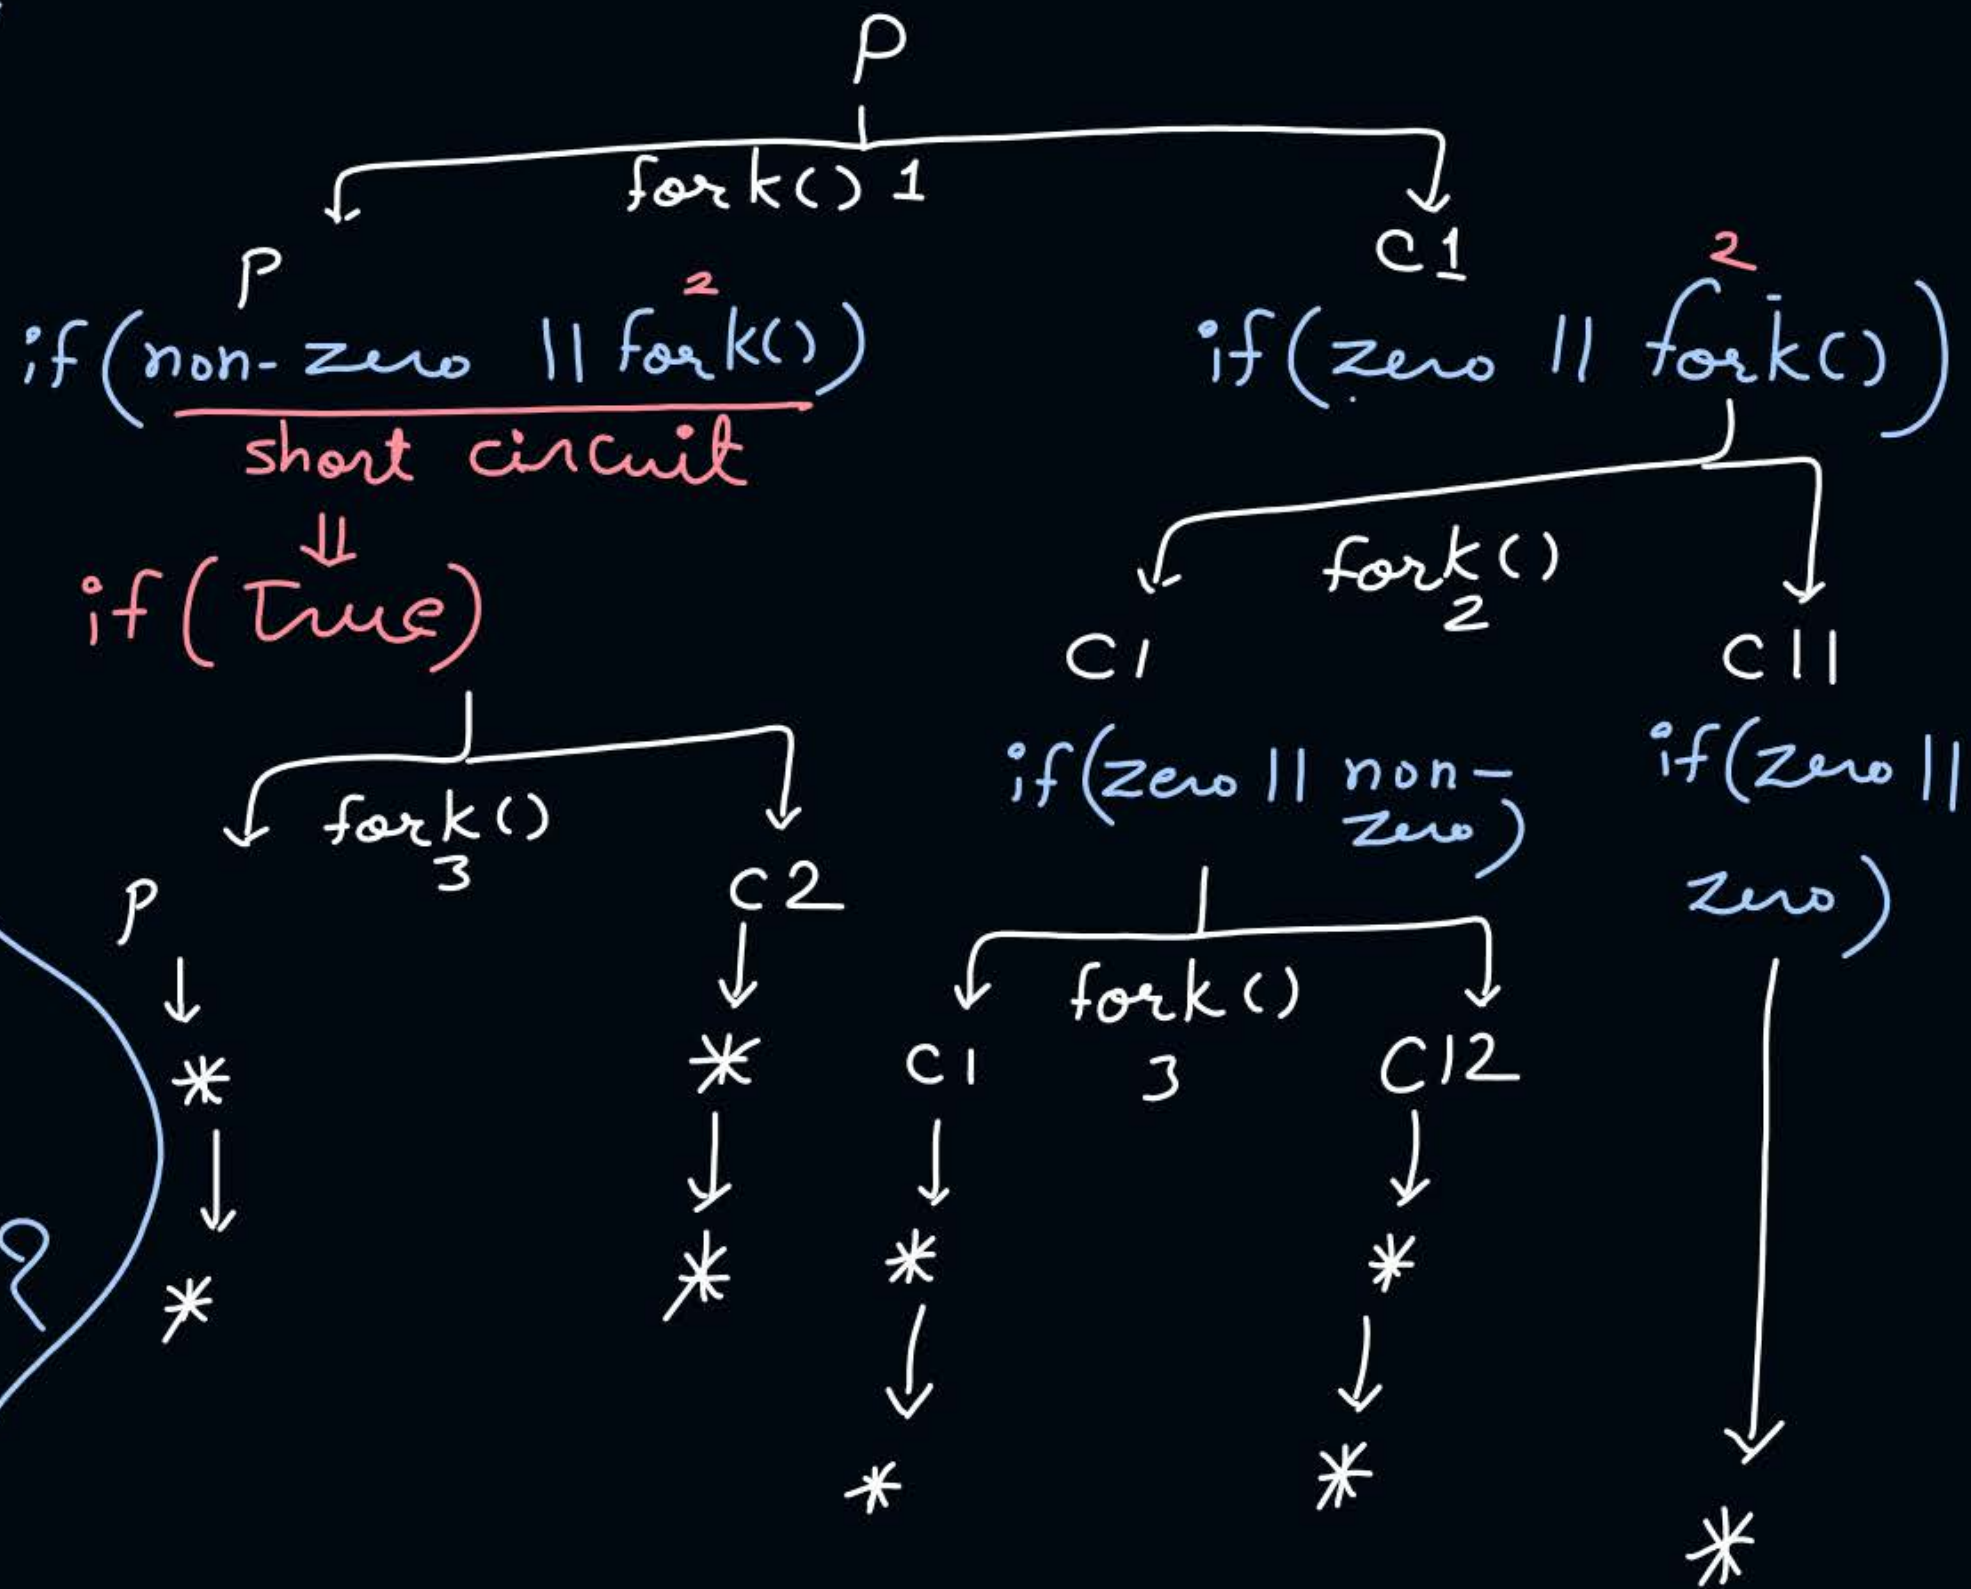 P
fork() 1
P
C1
2
2
if(non-zero || fork())
if(zero || fork())
short circuit
⇓
if(True)
fork()
2
C1
C11
if(zero || non-
zero)
if(zero ||
zero)
fork()
3
P
C2
fork()
3
C1
C12
*
*
*
*
*
*
*
*
*